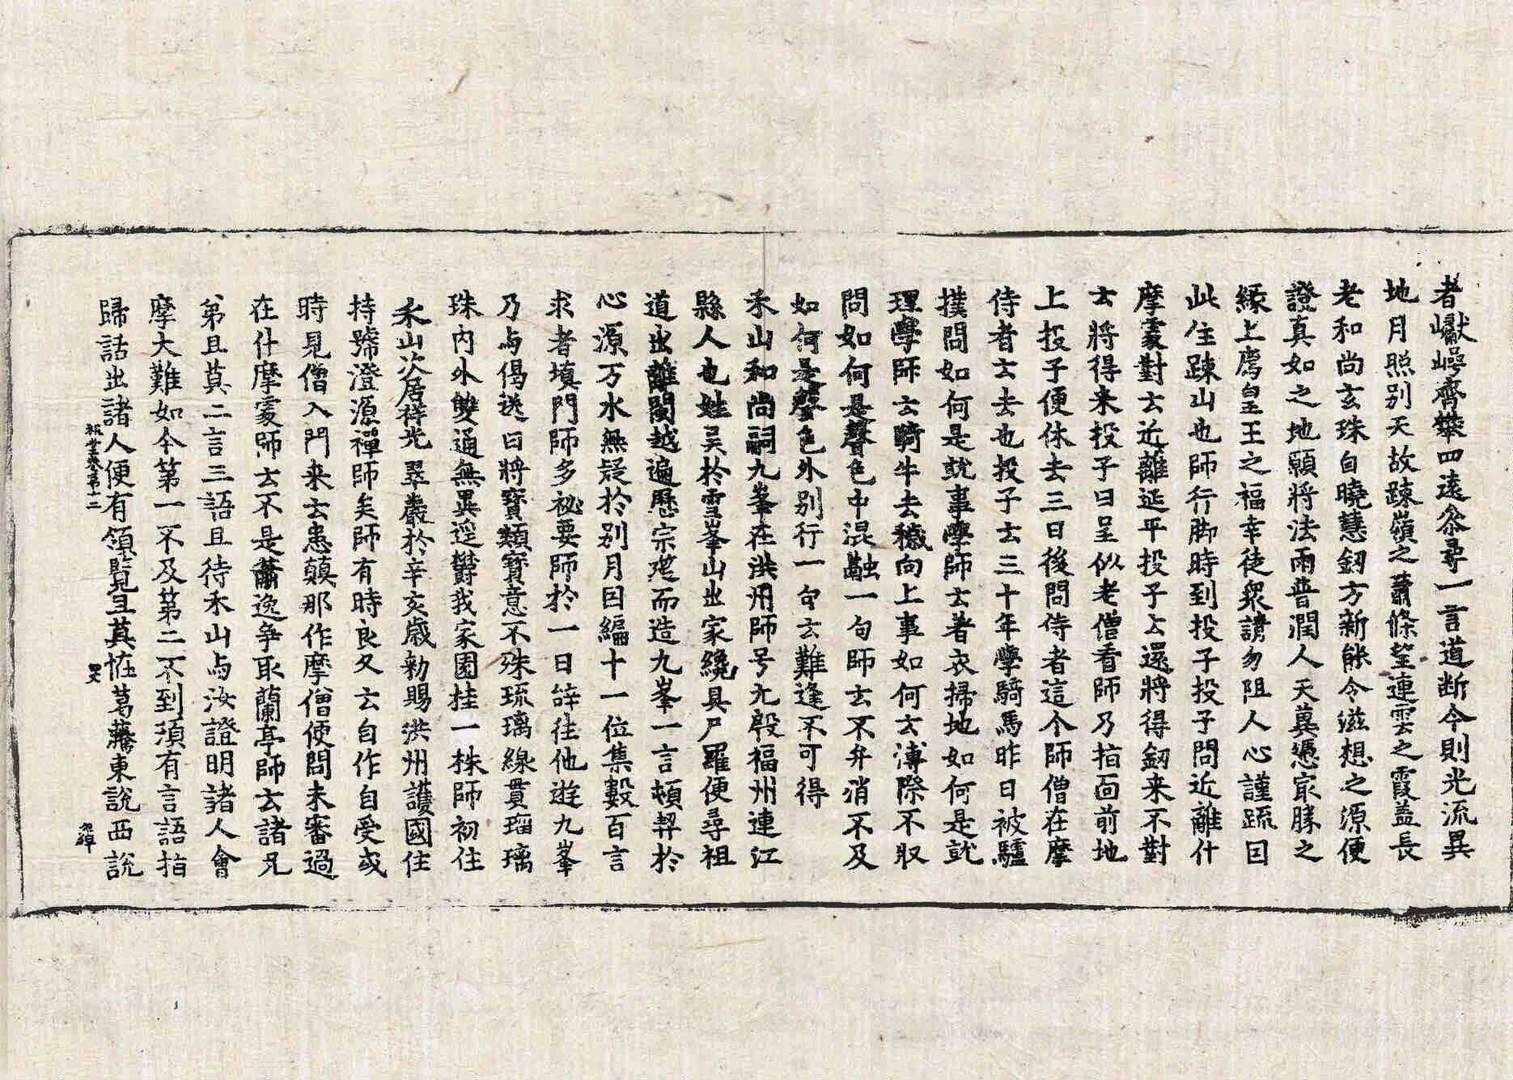 者巘㠋齊攀四遠叅尋一言道断今則光流異
地月照別天故踈嶺之蕭條望連雲之霞盖長
老和尚玄珠自曉慧釰方新能令滋想之源便
證真如之地願將法雨普潤人天冀憑㝡勝之
緣上膺皇王之福幸徒衆請勿阻人心謹䟽因
此住踈山也師行脚時到投子投子問近離什
摩䖏對云近離延平投子云還將得釰来不對
云將得来投子曰呈似老僧看師乃指面前地
上投子便休去三日後問侍者這个師僧在摩
侍者云去也投子云三十年學騎馬昨日被驢
撲問如何是就事學師云著衣掃地如何是就
理學師云騎牛去穢向上事如何云溥際不収
問如何是聲色中混融一句師云不弁消不及
如何是聲色外別行一句云難逢不可得
禾山和尚嗣九峯在洪州師号无殷福州連江
縣人也姓吴於雪峯山出家纔具尸羅便尋祖
道出離閩越遍歷宗㢠而造九峯一言頓契於
心源万水無疑於別月因編十一位集數百言
求者填門師多祕要師於一日辝往他遊九峯
乃与偈送曰將寶類寶意不殊琉璃線貫瑠璃
珠內外雙通無異逕欝我家園桂一株師初住
禾山次居祥光翠巖於辛亥歳勑賜洪州護國住
持號澄源禪師矣師有時良久云自作自受或
時見僧入門来云患顛那作摩僧便問未審過
在什摩䖏師云不是蕭逸争取蘭亭師云諸兄
弟且莫二言三語且待禾山与汝證明諸人會
摩大難如今第一不及第二不到須有言語指
歸話出諸人便有領覽且莫恠葛藤東說西說
祖堂卷第十二